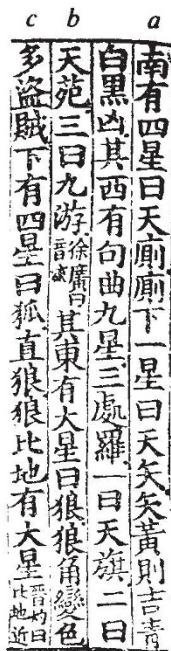 c b a
南有四星曰天廁廁下一星曰天矢矢黃則吉青
白黑凶其西有句曲九星三處羅一曰天旗二曰
天苑三曰九游徐廣曰音流其東有大星曰狼狼角變色
多盜賊下有四星曰狐直狼狼比地有大星晉灼曰比地近